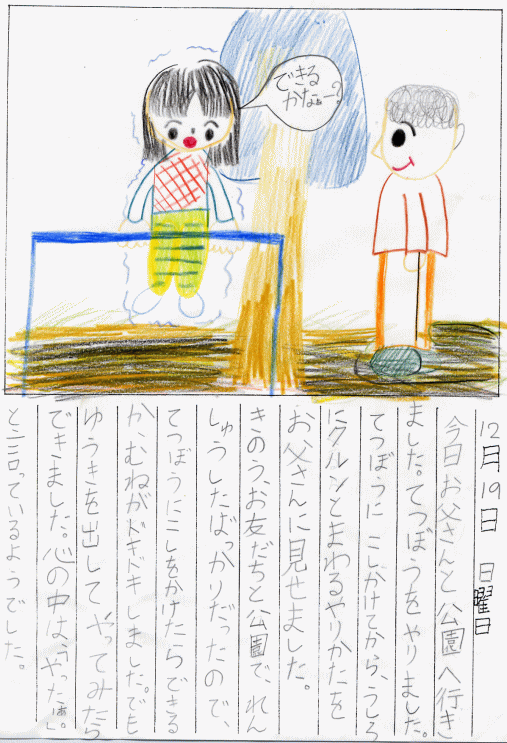 できる
かなぁー?
12月19日 日曜日
今日お父さんと公園へ行き
ました。てつぼうをやりました。
てつぼうにこしかけてから、うしろ
にクルンとまわるやりかたを
お父さんに見せました。
きのう、お友だちと公園で、れん
しゅうしたばっかりだったので、
てつぼうにこしをかけたらできる
か、むねがドキドキしました。でも
ゆうきを出してやってみたら
できました。心の中は、「やったぁ。」
と言っているようでした。